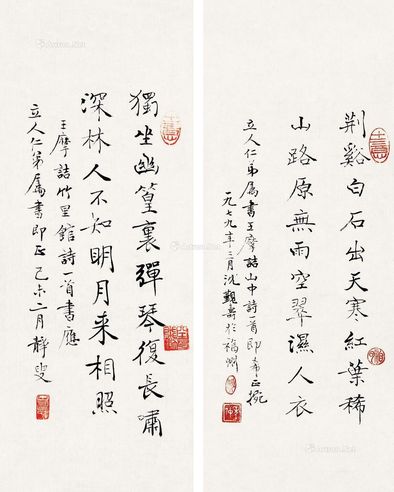 荆谿白石出天寒紅葉稀
山路原無雨空翠濕人衣
立人仁弟属書王摩詰山中詩一首即希正捥
一九七九年三月沈覲壽於福州
獨坐幽篁裏彈琴復長嘯
深林人不知明月来相照
王摩詰竹里館詩一首書應
立人仁弟属書即正己未二月靜叟